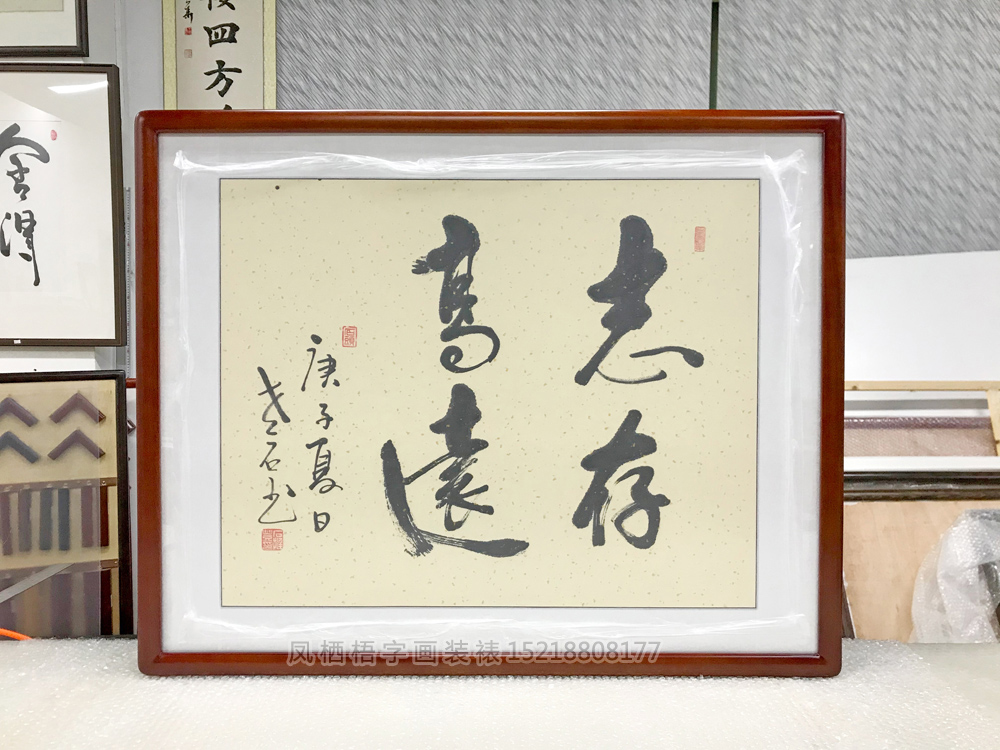 志存
高遠
庚子夏日
老石书
四方
舍得
凤栖梧字画装裱15218808177